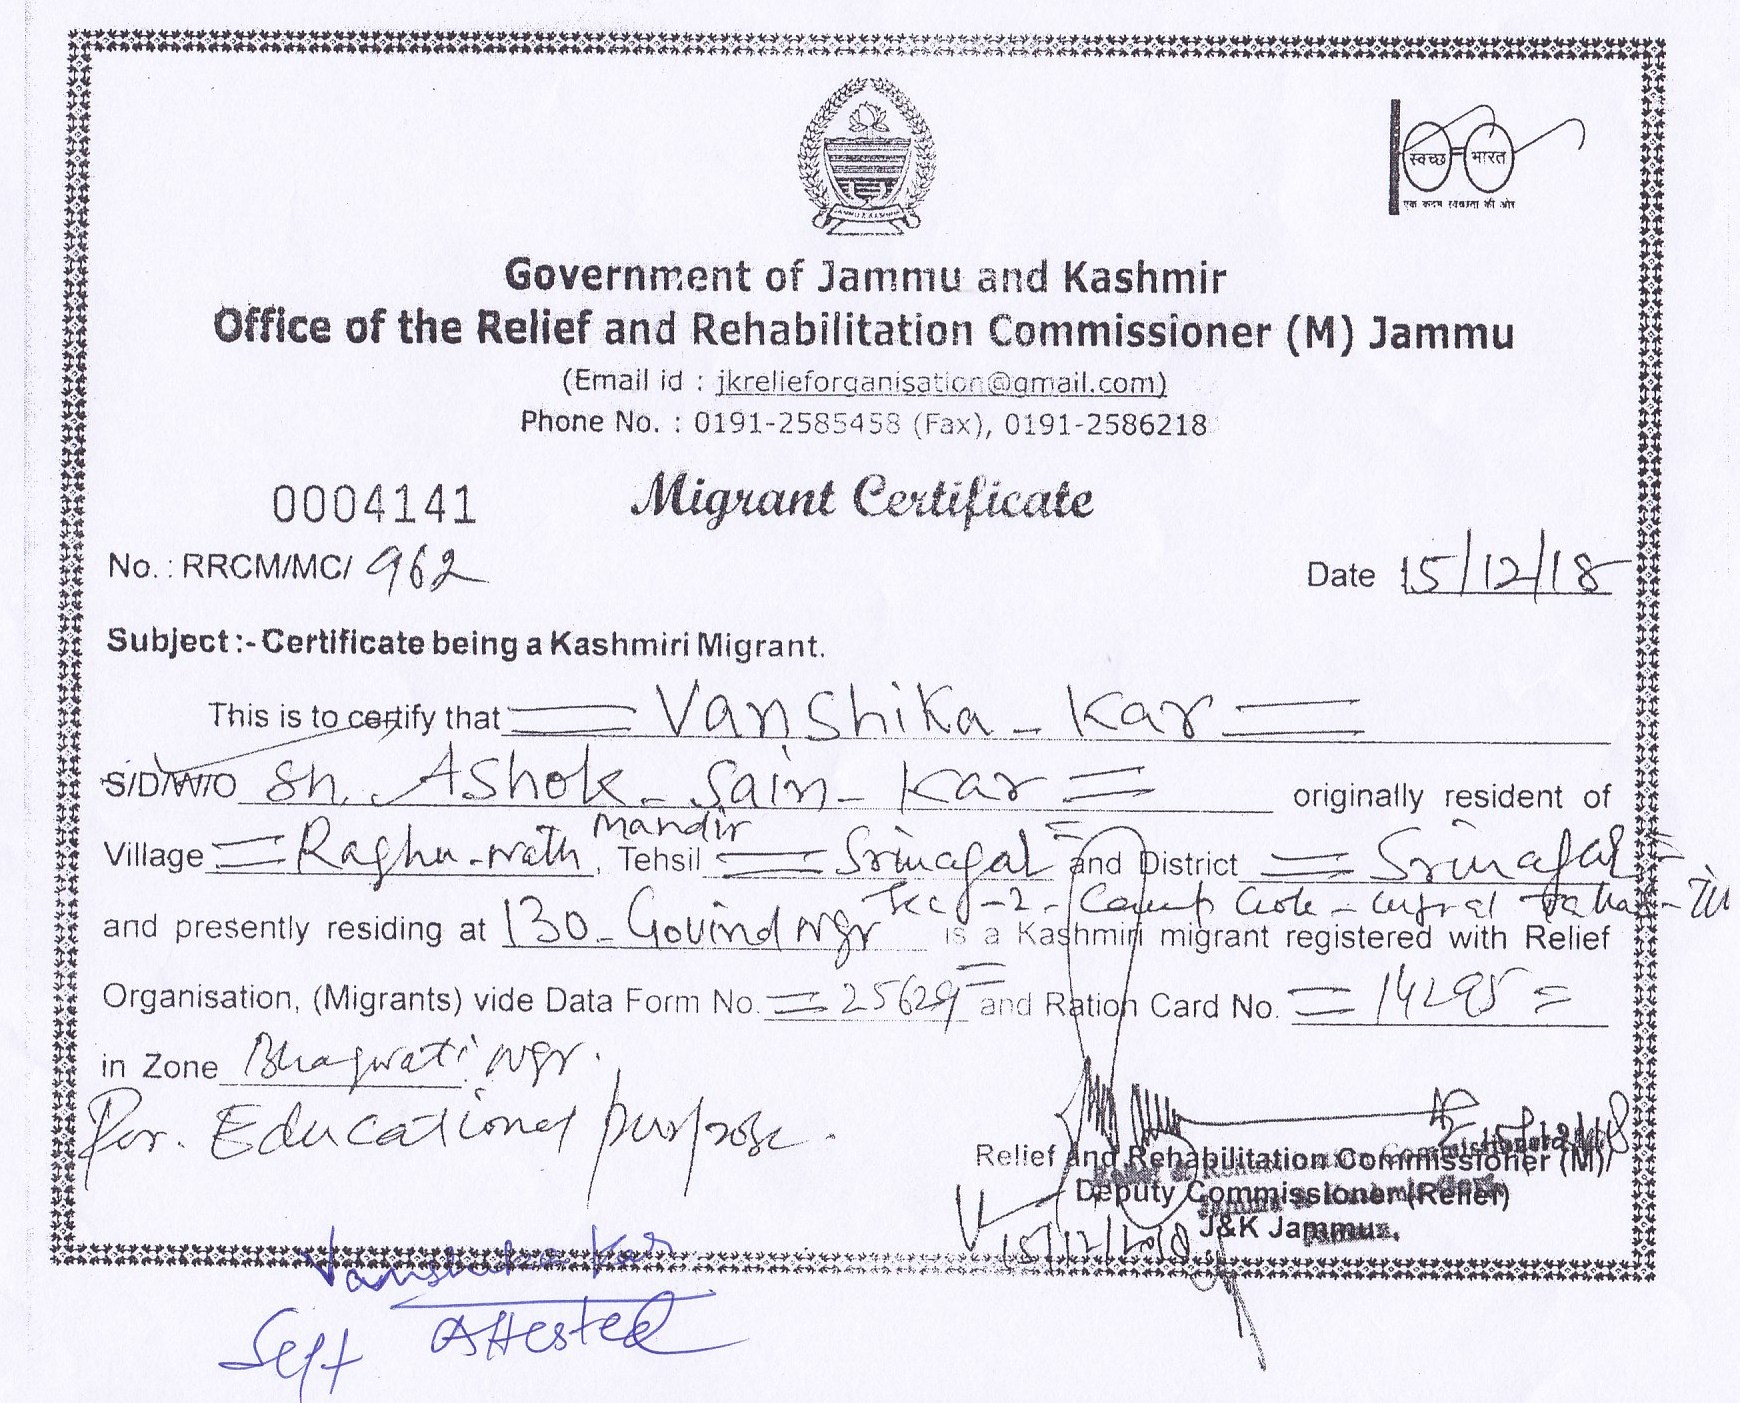 JAMMU & KASHMIR
स्वच्छ भारत
एक कदम स्वच्छता की ओर
Government of Jammu and Kashmir
Office of the Relief and Rehabilitation Commissioner (M) Jammu
(Email id : jkrelieforganisation@gmail.com)
Phone No. : 0191-2585458 (Fax), 0191-2586218
0004141 Migrant Certificate
No. : RRCM/MC/ 962 Date 15/12/18
Subject :- Certificate being a Kashmiri Migrant.
This is to certify that Vanshika - Kar
S/D/W/O Sh. Ashok - Sain - Kar originally resident of
Village Raghu-nath Mandir, Tehsil Srinagar and District Srinagar
and presently residing at 130 - Govind Ngr - 2 - Camp is a Kashmiri migrant registered with Relief
Organisation, (Migrants) vide Data Form No. 25629 and Ration Card No. 14295
in Zone Bhagwati Ngr.
For. Educational purpose.
15/12/18
Relief and Rehabilitation Commissioner (M)/
Deputy Commissioner (Relief)
J&K Jammu.
15/12/2018
Vanshika Kar
Self Attested